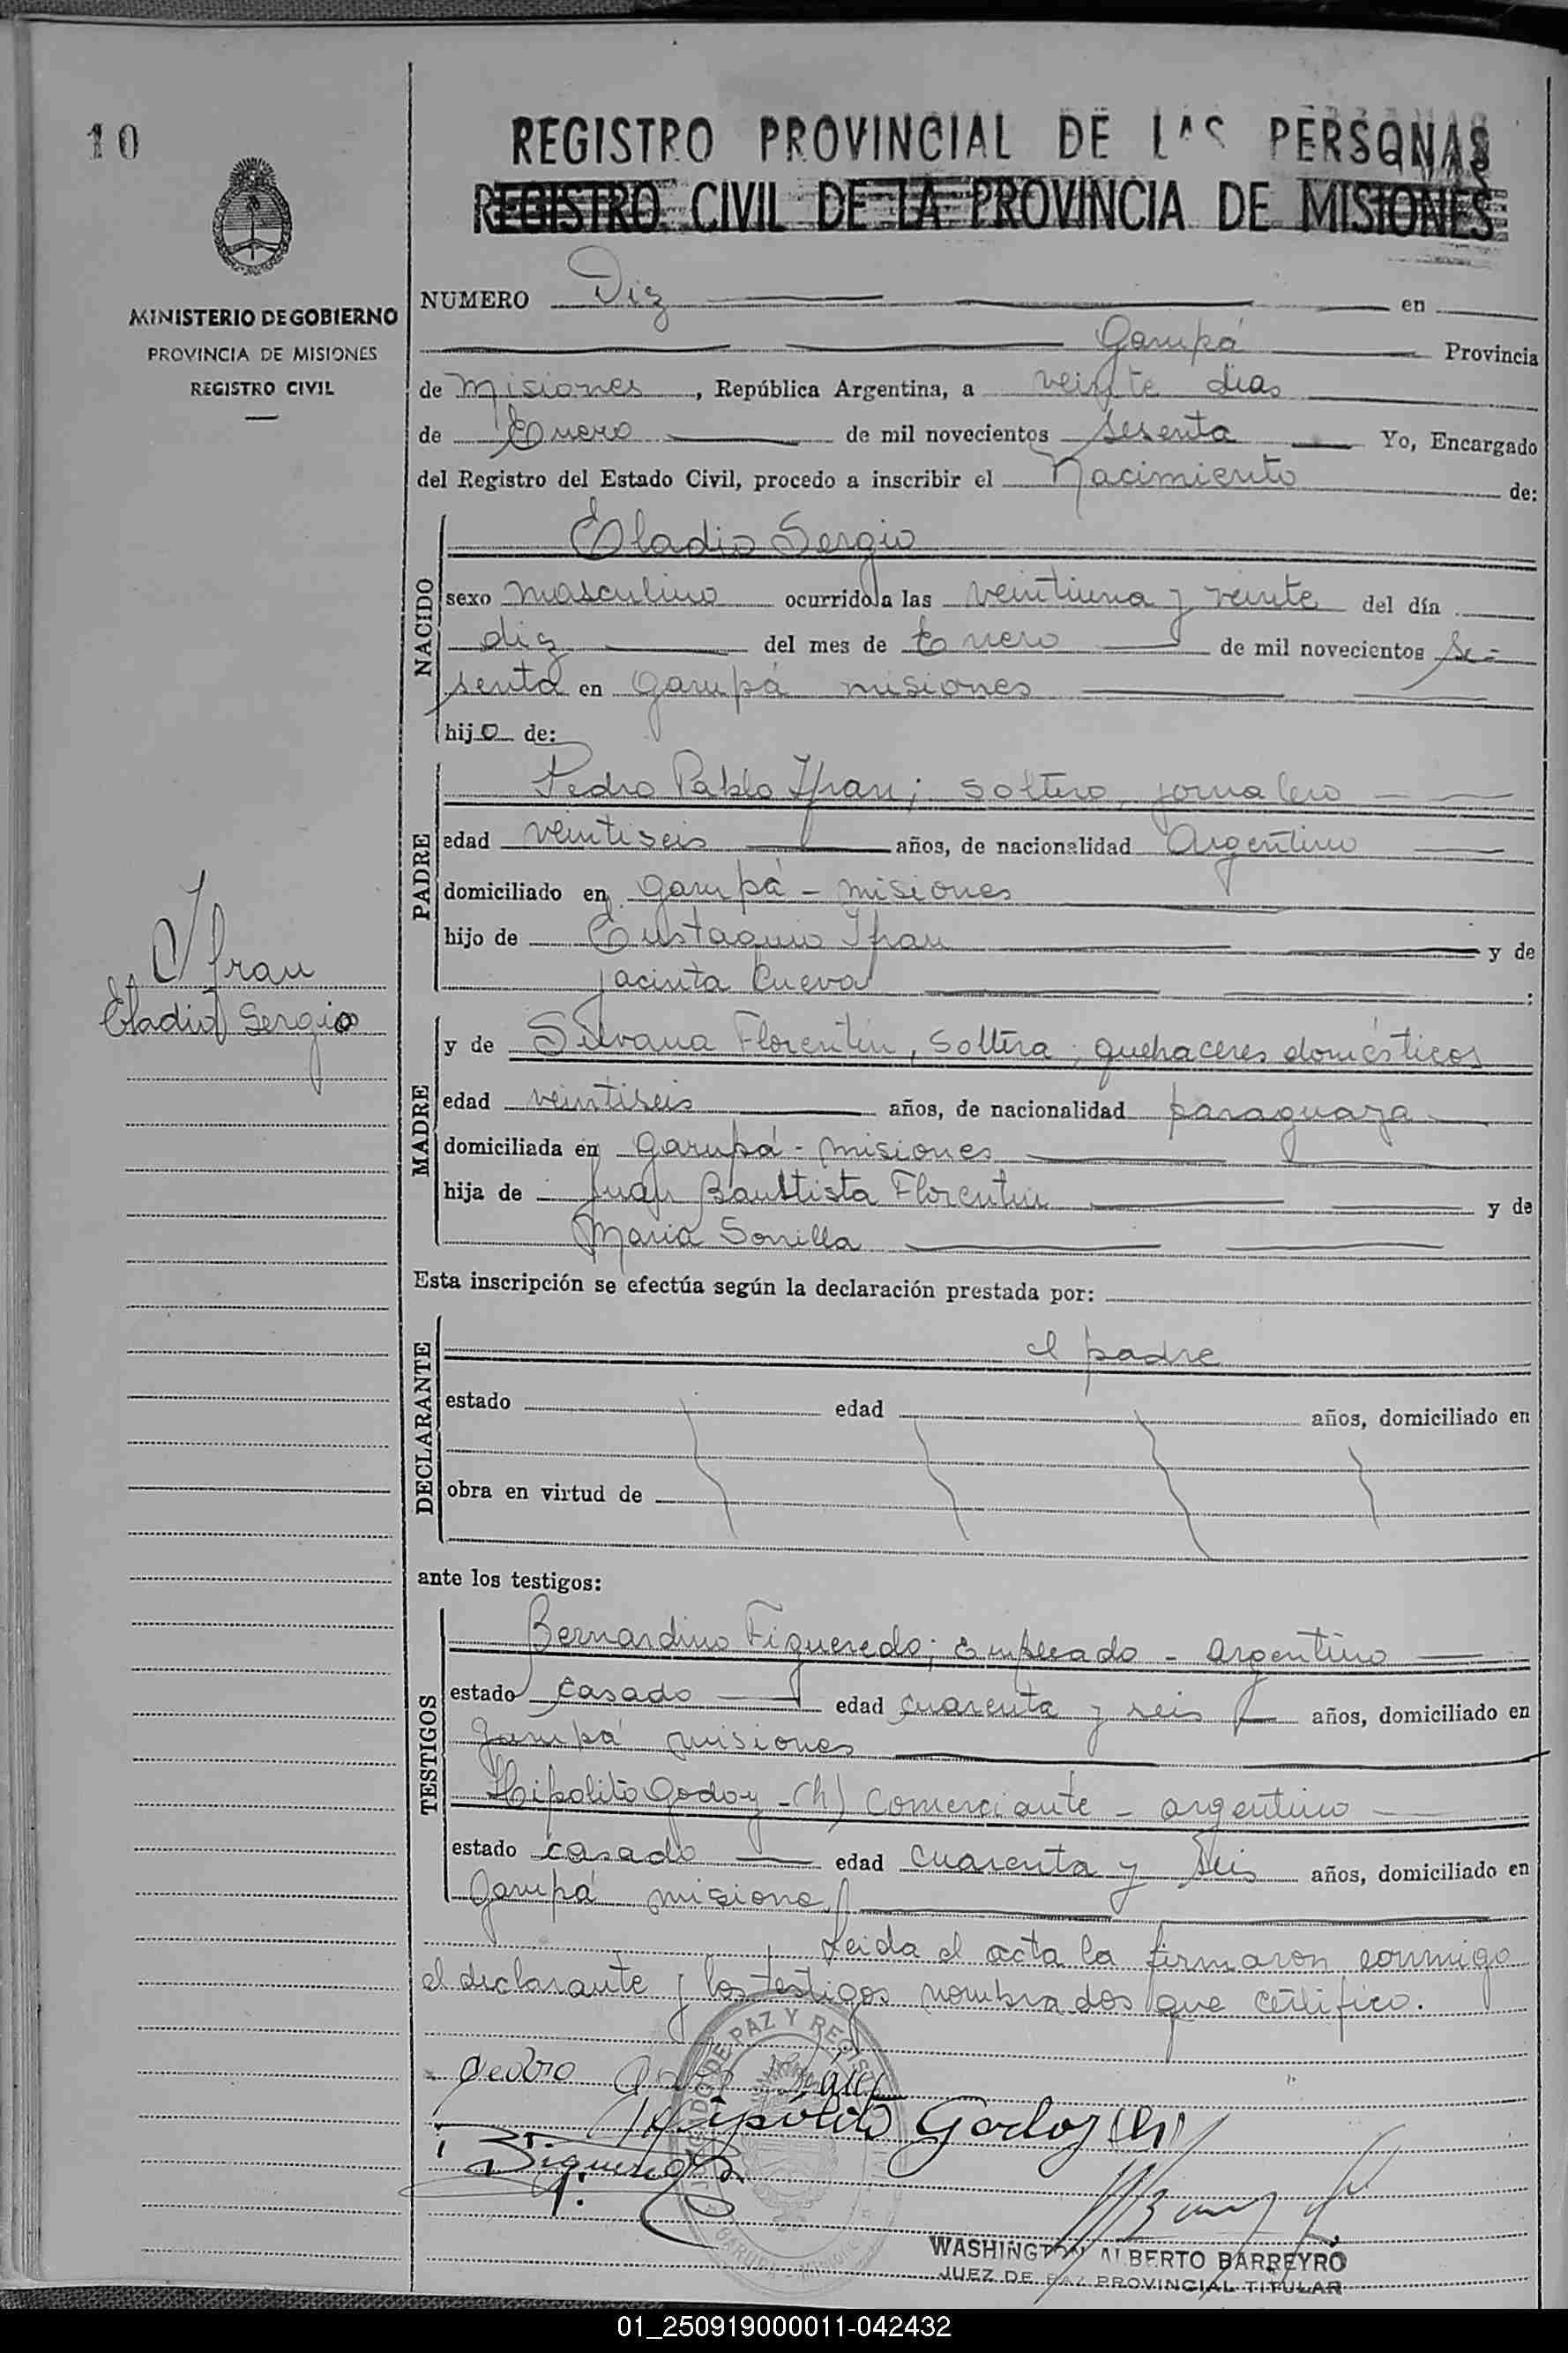 10
REGISTRO PROVINCIAL DE LAS PERSONAS
REGISTRO CIVIL DE LA PROVINCIA DE MISIONES
MINISTERIO DE GOBIERNO
PROVINCIA DE MISIONES
REGISTRO CIVIL
NUMERO Diz en
Garupá Provincia
de Misiones, República Argentina, a veinte dias
de Enero de mil novecientos sesenta Yo, Encargado
del Registro del Estado Civil, procedo a inscribir el Nacimiento de:
NACIDO
Eladio Sergio
sexo masculino ocurrido a las veintiuna y veinte del día
diz del mes de Enero de mil novecientos se-
senta en Garupá misiones
hijo de:
PADRE
Pedro Pablo Ifran; soltero, jornalero
edad veintiseis años, de nacionalidad Argentino
domiciliado en Garupá - misiones
hijo de Eustaquio Ifran y de
Jacinta Cueva :
Ifran
Eladio Sergio
MADRE
y de Silvana Florentin, Soltera, quehaceres domésticos
edad veintiseis años, de nacionalidad paraguaya
domiciliada en Garupá - misiones
hija de Juan Bauttista Florentin y de
Maria Sorrilla
Esta inscripción se efectúa según la declaración prestada por:
DECLARANTE
el padre
estado edad años, domiciliado en
obra en virtud de
ante los testigos:
TESTIGOS
Bernardino Figueredo; Empleado - argentino
estado casado edad cuarenta y seis años, domiciliado en
Garupá misiones
Hipolito Godoy - (h) Comerciante - argentino
estado casado edad cuarenta y seis años, domiciliado en
Garupá misiones
Leida el acta la firmaron conmigo
el declarante y los testigos nombrados que certifico.
JUZGADO DE PAZ Y REGIS
GARUPA - MISIONES
Pedro
Hipólito Godoy (h)
Figueredo
WASHINGTON ALBERTO BARREYRO
JUEZ DE PAZ PROVINCIAL TITULAR
01_250919000011-042432